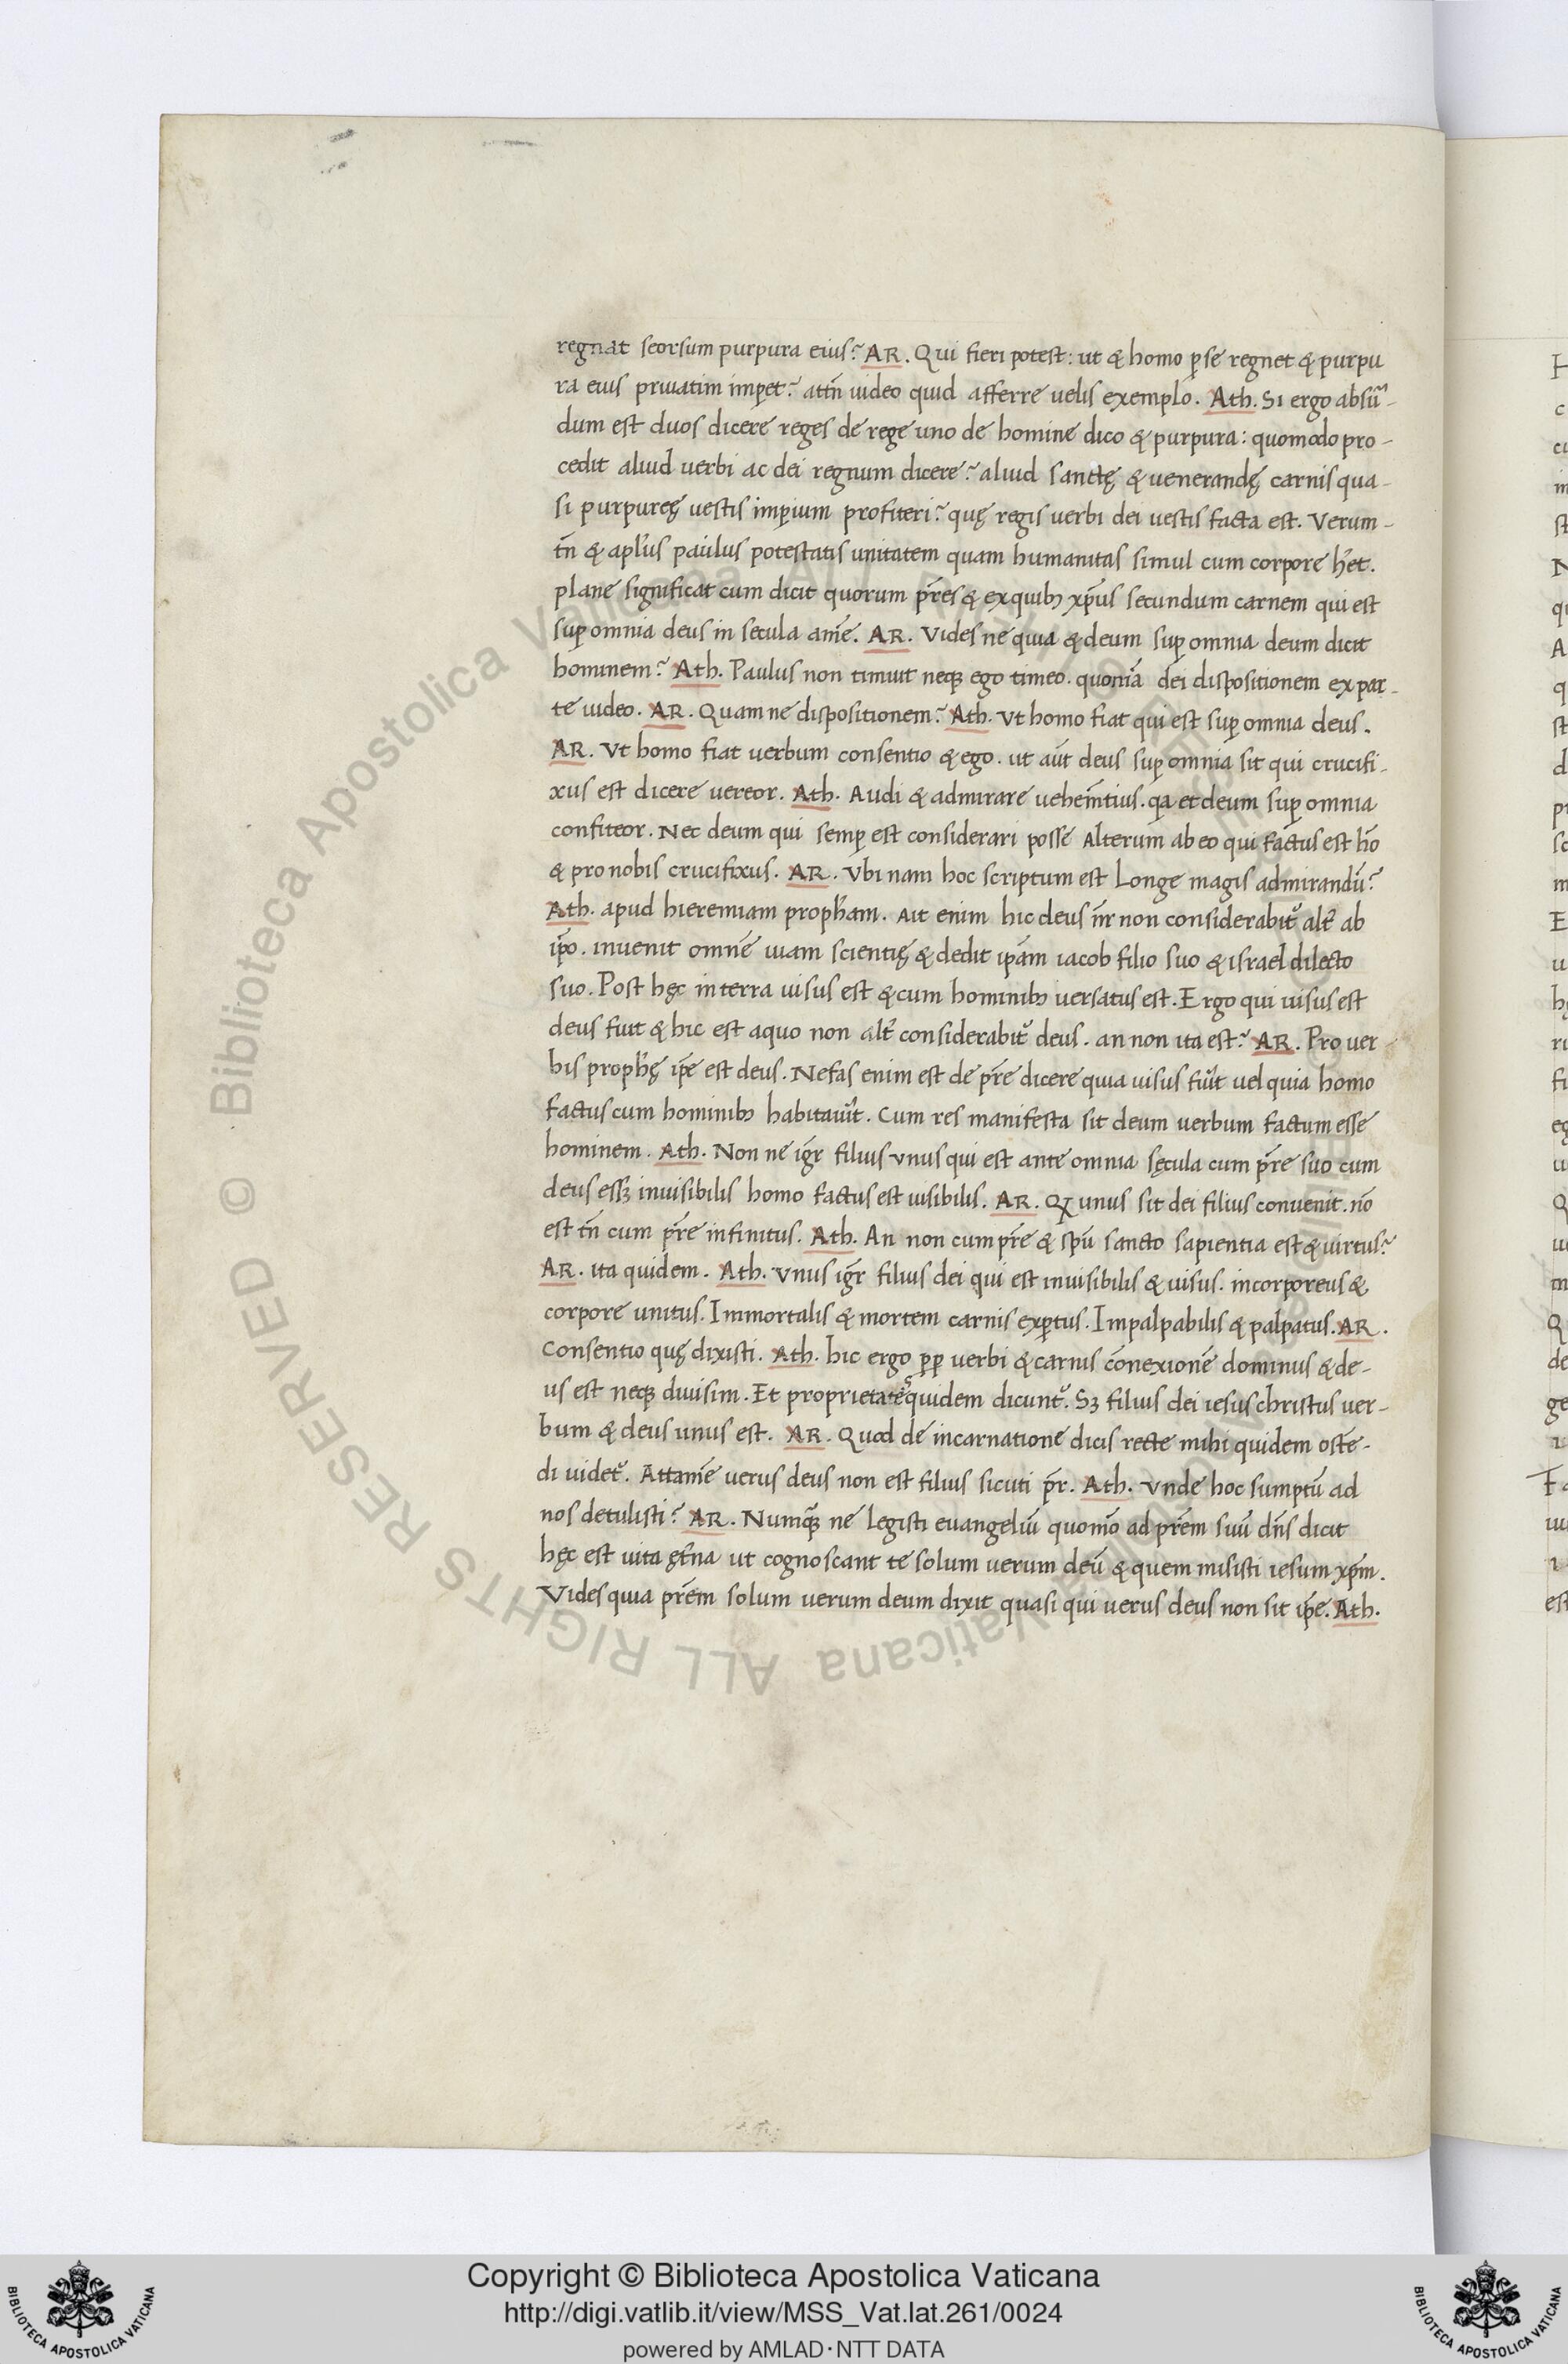 regnat seorsum purpura eius? AR. Qui fieri potest: ut & homo ꝑ se regnet & purpu
ra eius priuatim imꝑet? attñ uideo quid afferre uelis exemplo. Ath. Si ergo absũ-
dum est duos dicere reges de rege uno de homine dico & purpura: quomodo pro-
cedit aliud uerbi ac dei regnum dicere? aliud sanctę & uenerandę carnis qua-
si purpureę uestis imꝑium profiteri? quę regis uerbi dei uestis facta est. Verum-
tñ & apl̃us paulus potestatis unitatem quam humanitas simul cum corpore h̃et.
plane significat cum dicit quorum pr̃es & ex quibꝫ xp̃us secundum carnem qui est
suꝑ omnia deus in secula amẽ. AR. Vides ne quia & deum suꝑ omnia deum dicit
hominem? Ath. Paulus non timuit neqꝫ ego timeo. quoniã dei dispositionem ex par-
te uideo. AR. Quam ne dispositionem? Ath. Vt homo fiat qui est suꝑ omnia deus.
AR. Vt homo fiat uerbum consentio & ego. ut aũt deus suꝑ omnia sit qui crucifi-
xus est dicere uereor. Ath. Audi & admirare uehem̃tius. q̃a et deum suꝑ omnia
confiteor. Nec deum qui semꝑ est considerari posse Alterum ab eo qui factus est hõ
& pro nobis crucifixus. AR. Vbi nam hoc scriptum est Longe magis admirandũ?
Ath. apud hieremiam proph̃am. Ait enim hic deus nr̃ non considerabit᷑ alt̃ ab
ip̃o. inuenit omnẽ uiam scientię & dedit ip̃am iacob filio suo & israel dilecto
suo. Post hęc in terra uisus est & cum hominibꝫ uersatus est. Ergo qui uisus est
deus fuit & hic est a quo non alt̃ considerabit᷑ deus. an non ita est? AR. Pro uer
bis proph̃ę ip̃e est deus. Nefas enim est de pr̃e dicere quia uisus fũit uel quia homo
factus cum hominibꝫ habitaũit. Cum res manifesta sit deum uerbum factum esse
hominem. Ath. Non ne igr̃ filius vnus qui est ante omnia sęcula cum pr̃e suo cum
deus ess& inuisibilis homo factus est uisibilis. AR. Qꝫ unus sit dei filius conuenit. nõ
est tñ cum pr̃e infinitus. Ath. An non cum pr̃e & sp̃u sancto sapientia est & uirtus?
AR. ita quidem. Ath. Vnus igr̃ filius dei qui est inuisibilis & uisus. incorporeus &
corpore unitus. Immortalis & mortem carnis exꝑtus. Impalpabilis & palpatus. AR.
Consentio quę dixisti. Ath. hic ergo pp̃ uerbi & carnis cõnexionẽ dominus & de-
us est neqꝫ diuisim. Et proprietate quidem dicunt᷑. Sꝫ filius dei iesus christus uer-
bum & deus unus est. AR. Quod de incarnatione dicis recte mihi quidem ostẽ-
di uidet᷑. Attamẽ uerus deus non est filius sicuti pr̃. Ath. Vnde hoc sumptũ ad
nos detulisti? AR. Numq̃ ne legisti euangeliũ quomõ ad pr̃em suũ dñs dicit
hęc est uita ęt̃na ut cognoscant te solum uerum deũ & quem misisti iesum xp̃m.
Vides quia pr̃em solum uerum deum dixit quasi qui uerus deus non sit ip̃e. Ath.
© Biblioteca Apostolica Vaticana ALL RIGHTS RESERVED
Copyright © Biblioteca Apostolica Vaticana
http://digi.vatlib.it/view/MSS_Vat.lat.261/0024
powered by AMLAD·NTT DATA
BIBLIOTECA APOSTOLICA VATICANA
BIBLIOTECA APOSTOLICA VATICANA